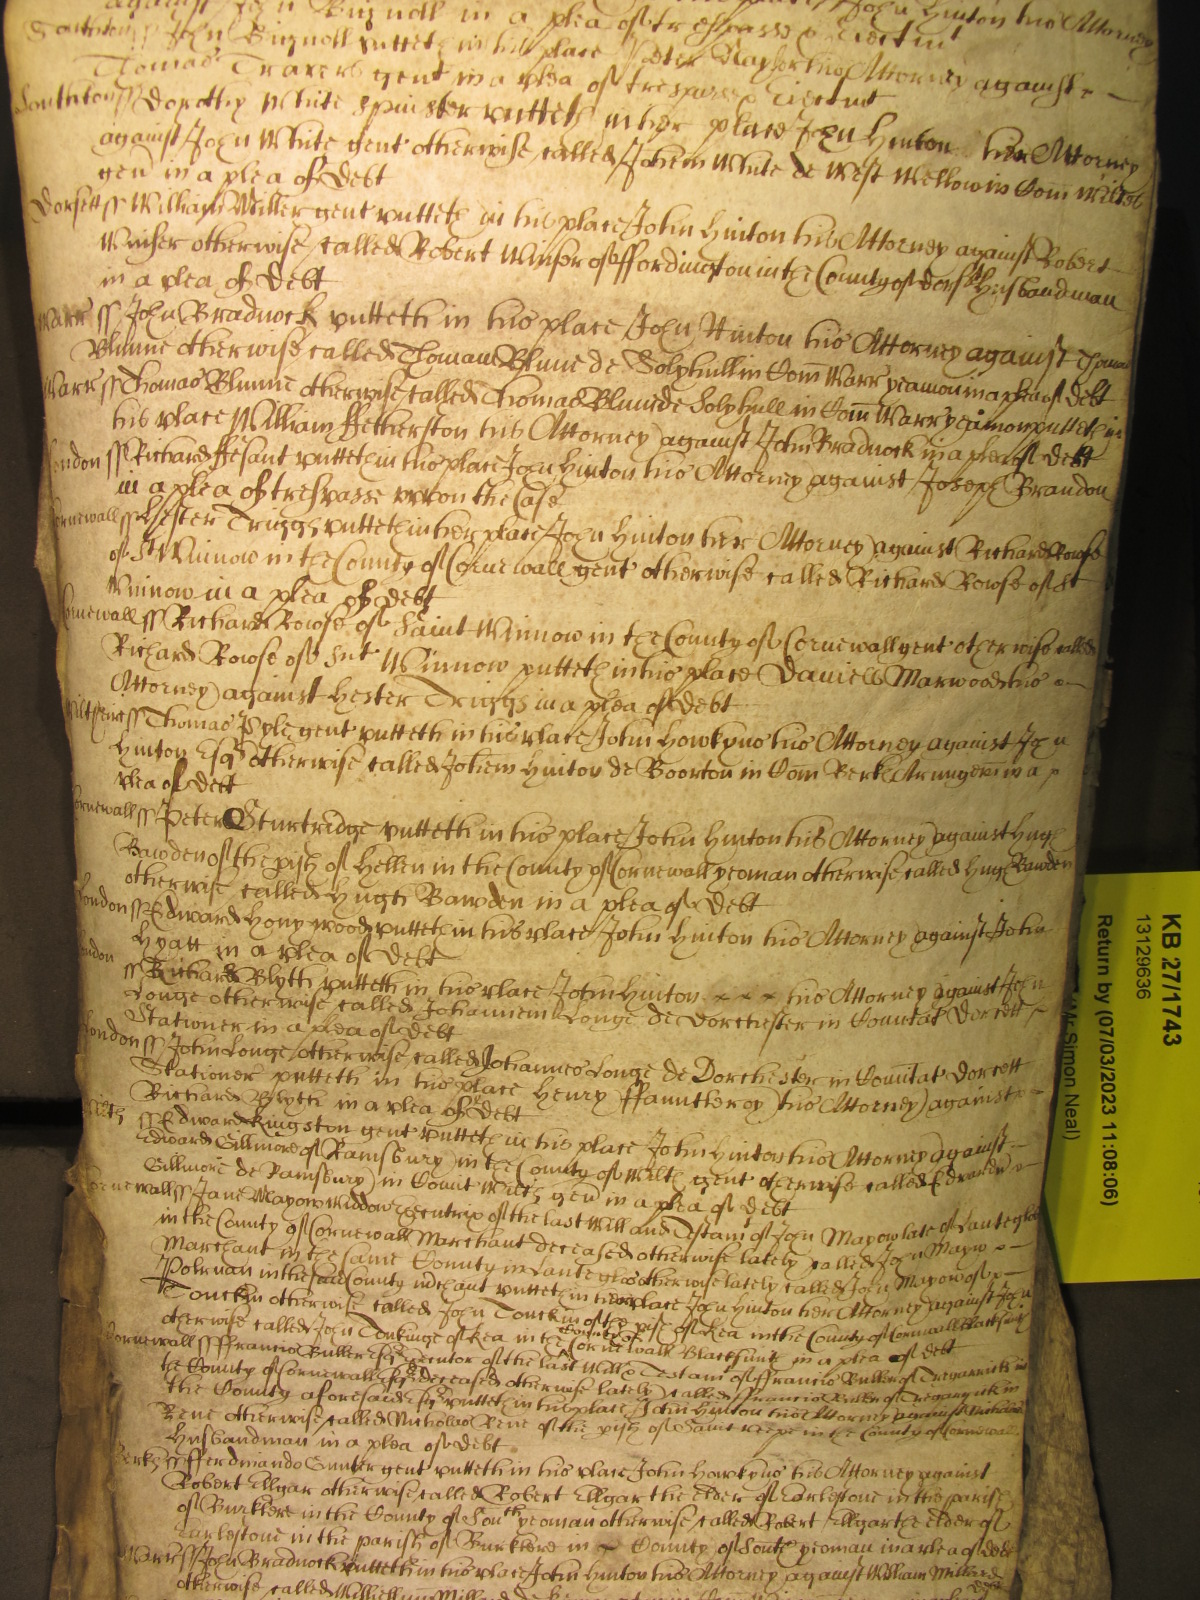 against John Bignoll in a plea of trespass & Ejectmt John Hinton his Attorney
Southton ss John Bignoll putteth in his place Peter Naylor his Attorney against
Thomas Travers gent in a plea of trespas & Ejectmt
Southton ss Dorothy White Spinster putteth in her place John Hinton her Attorney
against John White gent otherwise called Johem White de West Wellow in Com Wiltes
gen in a plea of Debt
Dorsett ss William Miller gent putteth in his place John Hinton his Attorney against Robert
Winser otherwise called Robert Winser of ffordington in the County of Dorsett Husbandman
in a plea of Debt
Warr ss John Bradnock putteth in his place John Hinton his Attorney against Thomas
Blunne otherwise called Thomam Blune de Solyhull in Com Warr yeamon in a plea of Debt
Warr ss Thomas Blunne otherwise called Thomas Blune de Solyhull in Com Warr yeamon putteth in
his place William ffetherston his Attorney against John Bradnock in a plea of Debt
London ss Richard ffesant putteth in his place John Hinton his Attorney against Joseph Brandon
in a plea of trespasse upon the Case
Cornewall ss Hester Triggs putteth in her place John Hinton her Attorney against Richard Rowse
of St Winnow in the County of Cornewall gent otherwise called Richard Rowse of St
Winnow in a plea of Debt
Cornewall ss Richard Rowse of Saint Winnow in the County of Cornewall gent otherwise called
Richard Rowse of Snt Winnow putteth in his place Daniell Marwood his
Attorney against Hester Triggs in a plea of Debt
Wiltshire ss Thomas Pyle gent putteth in his place John Howkyns his Attorney against John
Hinton Esqr otherwise called Johem Hinton de Boorton in Com Berk Armigerum in a
plea of Debt
Cornewall ss Peter Sturtridge putteth in his place John Hinton his Attorney against Hugh
Bawden of the pish of Hellen in the County of Cornewall yeoman otherwise called Hugh Bawden
otherwise called Hugh Bawden in a plea of Debt
London ss Edward Honywood putteth in his place John Hinton his Attorney against John
Hyatt in a plea of Debt
London ss Richard Blyth putteth in his place John Hinton his Attorney against John
Longe otherwise called Johannem Longe de Dorchester in Comitat Dorcett
Stationer in a plea of Debt
London ss John Longe otherwise called Johannes Longe de Dorchester in Comitat Dorcett
Stationer putteth in his place Henry ffauntleroy his Attorney against
Richard Blyth in a plea of Debt
Wilts ss Edward Kingston gent putteth in his place John Hinton his Attorney against
Edward Gillmore of Ramsbury in the County of Wilts gent otherwise called Edwardu
Gillmore de Ramsbury in Comit Wilts gen in a plea of Debt
Cornewall ss Jane Mayow Widdow Executrix of the last Will and Testamt of John Mayow late of Lanteglos
in the County of Cornewall Marchant deceased otherwise lately called John Mayow
Marchant in the same County in Lanteglos otherwise lately called John Mayow of
Polruan in the said County mchant putteth in her place John Hinton her Attorney against John
Tonckin otherwise called John Tonckin of the pish of Kea in the County of Cornwall Blacksmith
otherwise called John Tonkinge of Kea in the County of Cornewall Blacksmith in a plea of Debt
Cornewall ss ffrancis Buller Esqr Executor of the last Will & Testamt of ffrancis Buller of Tregarrick in
the County of Cornewall Esqr deceased otherwise lately called ffrancis Buller of Tregarrick in
the County aforesaid Esqr putteth in his place John Hinton his Attorney against Nicholas
Bene otherwise called Nicholas Bene of the pish of Saint Keepe in the County of Cornewall
Husbandman in a plea of Debt
Berks ss fferdinando Gunter gent putteth in his place John Howkyns his Attorney against
Robert Ellgar otherwise called Robert Ellgar the elder of Earlestone in the parish
of Burklere in the County of Southt yeoman otherwise called Robert Ellgar the elder of
Earlestone in the parish of Burklere in County of South yeoman in a plea of debt
Warr ss John Bradnock putteth in his place John Hinton his Attorney against William Millard
otherwise called Willielmum Millard de
KB 27/1743
13129636
Return by (07/03/2023 11:08:06)
Mr Simon Neal)